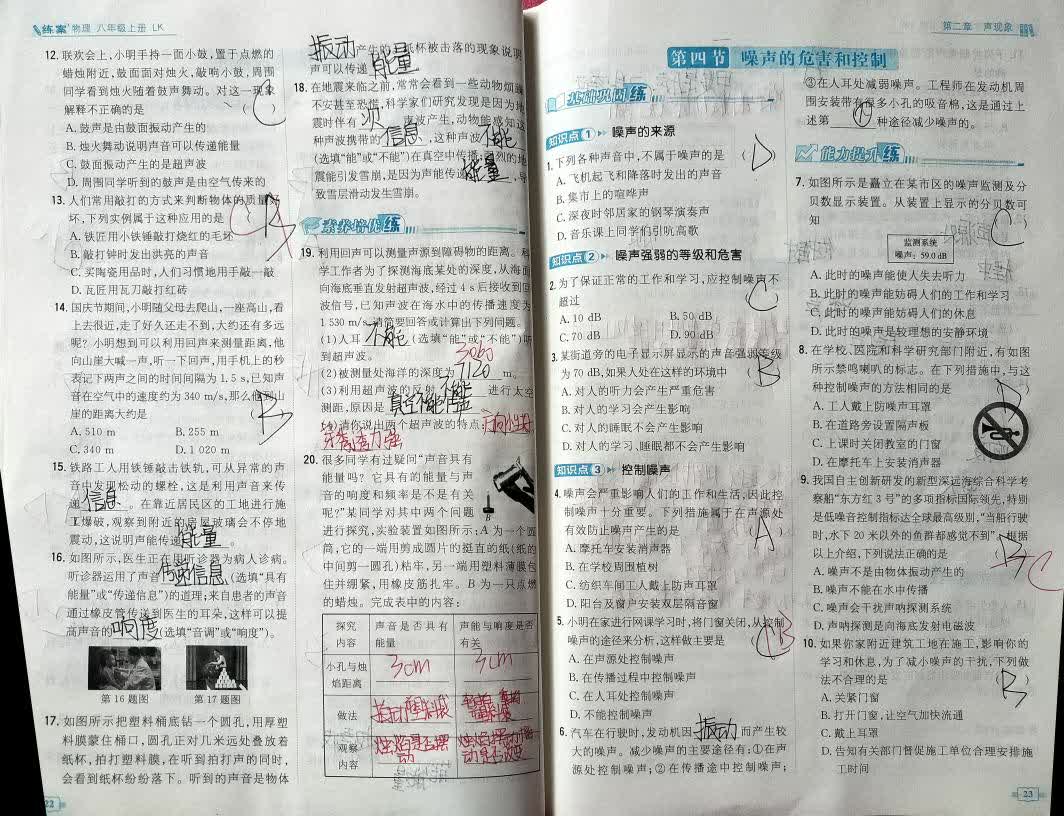 练案 物理 八年级上册 LK
12. 联欢会上,小明手持一面小鼓,置于点燃的
蜡烛附近,鼓面面对烛火,敲响小鼓,周围
同学看到烛火随着鼓声舞动。对这一现象
解释不正确的是 ( C )
A. 鼓声是由鼓面振动产生的
B. 烛火舞动说明声音可以传递能量
C. 鼓面振动产生的是超声波
D. 周围同学听到的鼓声是由空气传来的
13. 人们常用敲打的方式来判断物体的质量好
坏,下列实例属于这种应用的是
A. 铁匠用小铁锤敲打烧红的毛坯
B. 敲打钟时发出洪亮的声音
C. 买陶瓷用品时,人们习惯用手敲一敲
D. 瓦匠用瓦刀敲打红砖
14. 国庆节期间,小明随父母去爬山,一座高山,看
上去很近,走了好久还走不到,大约还有多远
呢?小明想到可以利用回声来测量距离,他
向山崖大喊一声,听一下回声,用手机上的秒
表记下两声之间的时间间隔为 1.5 s,已知声
音在空气中的速度约为 340 m/s,那么他到山
崖的距离大约是 ( B )
A. 510 m B. 255 m
C. 340 m D. 1 020 m
15. 铁路工人用铁锤敲击铁轨,可从异常的声
音中发现松动的螺栓,这是利用声音来传
递 信息 。在靠近居民区的工地进行施
工爆破,观察到附近的房屋玻璃会不停地
震动,这说明声能传递 能量 。
16. 如图所示,医生正在用听诊器为病人诊病。
听诊器运用了声音 传递信息 (选填“具有
能量”或“传递信息”)的道理;来自患者的声音
通过橡皮管传递到医生的耳朵,这样可以提
高声音的 响度 (选填“音调”或“响度”)。
第16题图 第17题图
17. 如图所示把塑料桶底钻一个圆孔,用厚塑
料膜蒙住桶口,圆孔正对几米远处叠放着
纸杯,拍打塑料膜,在听到拍打声的同时,
会看到纸杯纷纷落下。听到的声音是物体
22
振动 产生的,纸杯被击落的现象说明
声可以传递 能量
18. 在地震来临之前,常常会看到一些动物烦躁
不安甚至恐慌,科学家们研究发现是因为地
震时伴有 次 声波产生,动物能感知这
种声波携带的 信息 ,这种声波 不能
(选填“能”或“不能”)在真空中传播;强烈的地
震能引发雪崩,是因为声能传递 能量 ,导
致雪层滑动发生雪崩。
素养培优练
19. 利用回声可以测量声源到障碍物的距离。科
学工作者为了探测海底某处的深度,从海面
向海底垂直发射超声波,经过 4 s 后接收到回
波信号,已知声波在海水中的传播速度为
1 530 m/s,请简要回答或计算出下列问题。
(1)人耳 不能 (选填“能”或“不能”)听
到超声波。
3060
(2)被测量处海洋的深度为 7120 m。
(3)利用超声波的反射 不能 进行太空
测距,原因是 真空不能传声
(4)请你说出两个超声波的特点:方向性好
穿透力强
20. 很多同学有过疑问“声音具有
能量吗?它具有的能量与声
音的响度和频率是不是有关
呢?”某同学对其中两个问题
进行探究,实验装置如图所示:A 为一个圆
筒,它的一端用剪成圆片的挺直的纸(纸的
中间剪一圆孔)粘牢,另一端用塑料薄膜包
住并绷紧,用橡皮筋扎牢。B 为一只点燃
的蜡烛。完成表中的内容:
A
B
探究内容 声音是否具有能量 声能与响度是否有关
小孔与烛焰距离 3cm 3cm
做法
观察内容 烛焰是否摆动
第二章 声现象
第四节 噪声的危害和控制
基础巩固练
知识点1 噪声的来源
1. 下列各种声音中,不属于噪声的是 ( D )
A. 飞机起飞和降落时发出的声音
B. 集市上的喧哗声
C. 深夜时邻居家的钢琴演奏声
D. 音乐课上同学们引吭高歌
知识点2 噪声强弱的等级和危害
2. 为了保证正常的工作和学习,应控制噪声不
超过 ( C )
A. 10 dB B. 50 dB
C. 70 dB D. 90 dB
3. 某街道旁的电子显示屏显示的声音强弱等级
为 70 dB,如果人处在这样的环境中 ( B )
A. 对人的听力会产生严重危害
B. 对人的学习会产生影响
C. 对人的睡眠不会产生影响
D. 对人的学习、睡眠都不会产生影响
知识点3 控制噪声
4. 噪声会严重影响人们的工作和生活,因此控
制噪声十分重要。下列措施属于在声源处
有效防止噪声产生的是 ( A )
A. 摩托车安装消声器
B. 在学校周围植树
C. 纺织车间工人戴上防声耳罩
D. 阳台及窗户安装双层隔音窗
5. 小明在家进行网课学习时,将门窗关闭,从控制
噪声的途径来分析,这样做主要是 B
A. 在声源处控制噪声
B. 在传播过程中控制噪声
C. 在人耳处控制噪声
D. 不能控制噪声
6. 汽车在行驶时,发动机因 振动 而产生较
大的噪声。减少噪声的主要途径有:①在声
源处控制噪声;②在传播途中控制噪声;
③在人耳处减弱噪声。工程师在发动机周
围安装带有很多小孔的吸音棉,这是通过上
述第 ② 种途径减少噪声的。
能力提升练
7. 如图所示是矗立在某市区的噪声监测及分
贝数显示装置。从装置上显示的分贝数可
知 ( C )
监测系统
噪声:59.0 dB
A. 此时的噪声能使人失去听力
B. 此时的噪声能妨碍人们的工作和学习
C. 此时的噪声能妨碍人们的休息
D. 此时的噪声是较理想的安静环境
8. 在学校、医院和科学研究部门附近,有如图
所示禁鸣喇叭的标志。在下列措施中,与这
种控制噪声的方法相同的是 ( D )
A. 工人戴上防噪声耳罩
B. 在道路旁设置隔声板
C. 上课时关闭教室的门窗
D. 在摩托车上安装消声器
9. 我国自主创新研发的新型深远海综合科学考
察船“东方红 3 号”的多项指标国际领先,特别
是低噪音控制指标达全球最高级别,“当船行驶
时,水下 20 米以外的鱼群都感觉不到”,根据
以上介绍,下列说法正确的是 ( B ) C
A. 噪声不是由物体振动产生的
B. 噪声不能在水中传播
C. 噪声会干扰声呐探测系统
D. 声呐探测是向海底发射电磁波
10. 如果你家附近建筑工地在施工,影响你的
学习和休息,为了减小噪声的干扰,下列做
法不合理的是 ( B )
A. 关紧门窗
B. 打开门窗,让空气加快流通
C. 戴上耳罩
D. 告知有关部门督促施工单位合理安排施
工时间
23